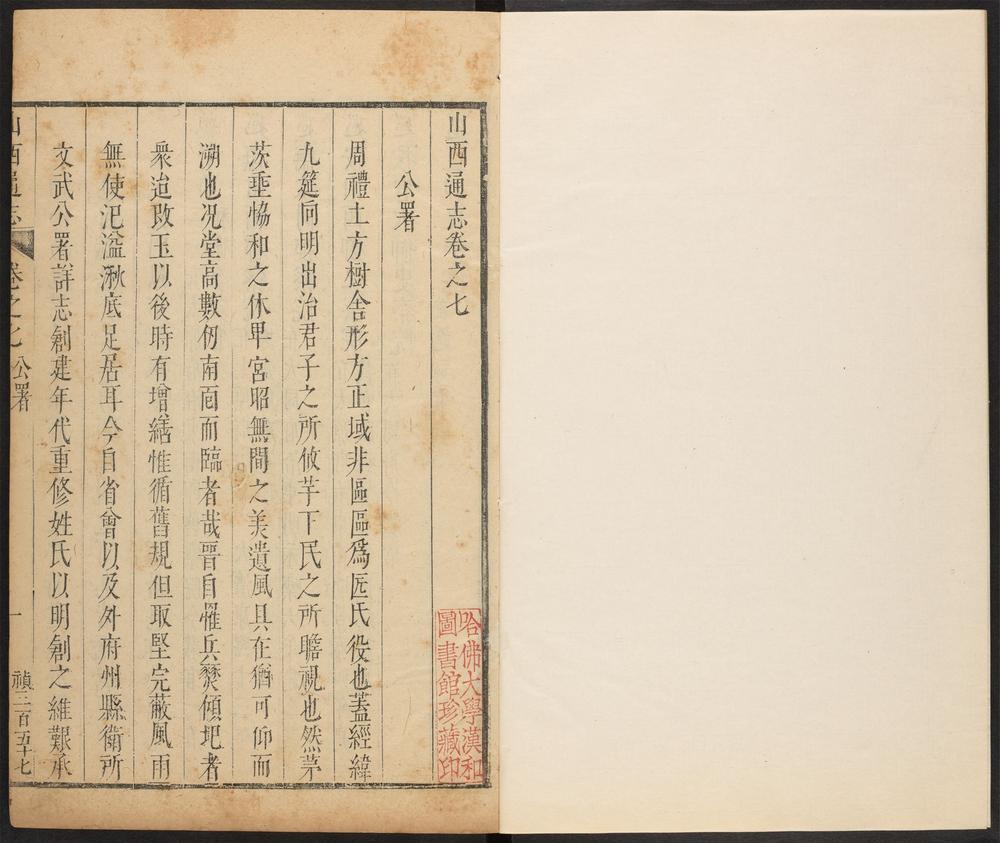 山西通志卷之七
公署
周禮土方樹舍形方正域非區區爲匠氏役也蓋經緯
九筵向明出治君子之所攸芋下民之所瞻視也然茅
茨垂恊和之休卑宮昭無間之美遺風具在猶可仰而
溯也况堂高數仞南面而臨者哉晉自罹兵燹傾圯者
衆迨改玉以後時有增繕惟循舊規但取堅完蔽風雨
無使汜溢湫底足居耳今自省會以及外府州縣衛所
文武公署詳志創建年代重修姓氏以明創之維艱承
山西通志
卷之七 公署
一
禎三百五十七
哈佛大學漢和
圖書館珍藏印